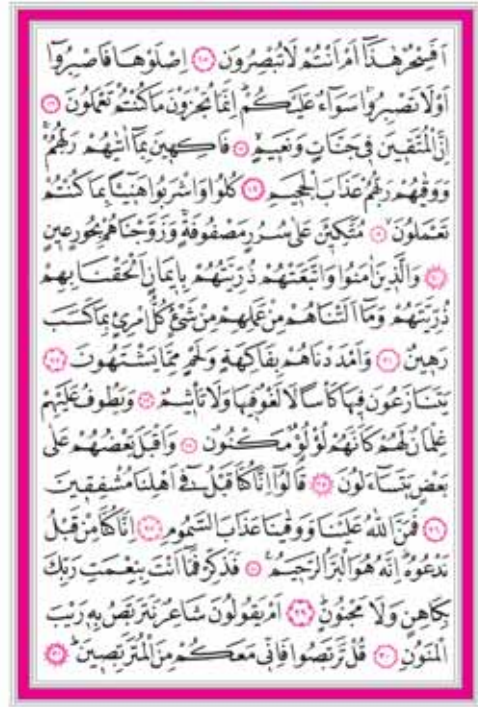 اَفَسِحْرٌ هٰذَٓا اَمْ اَنْتُمْ لَا تُبْصِرُونَ ﴿١٥﴾ اِصْلَوْهَا فَاصْبِرُٓوا
اَوْ لَا تَصْبِرُوا سَوَٓاءٌ عَلَيْكُمْ اِنَّمَا تُجْزَوْنَ مَا كُنْتُمْ تَعْمَلُونَ ﴿١٦﴾
اِنَّ الْمُتَّقِينَ فِي جَنَّاتٍ وَنَعِيمٍ ﴿١٧﴾ فَاكِهِينَ بِمَٓا اٰتٰيهُمْ رَبُّهُمْ
وَوَقٰيهُمْ رَبُّهُمْ عَذَابَ الْجَحِيمِ ﴿١٨﴾ كُلُوا وَاشْرَبُوا هَنِيٓـًٔا بِمَا كُنْتُمْ
تَعْمَلُونَ ﴿١٩﴾ مُتَّكِـِٔينَ عَلٰى سُرُرٍ مَصْفُوفَةٍ وَزَوَّجْنَاهُمْ بِحُورٍ عِينٍ
﴿٢٠﴾ وَالَّذِينَ اٰمَنُوا وَاتَّبَعَتْهُمْ ذُرِّيَّتُهُمْ بِاِيمَانٍ اَلْحَقْنَا بِهِمْ
ذُرِّيَّتَهُمْ وَمَٓا اَلَتْنَاهُمْ مِنْ عَمَلِهِمْ مِنْ شَيْءٍ كُلُّ امْرِئٍ بِمَا كَسَبَ
رَهِينٌ ﴿٢١﴾ وَاَمْدَدْنَاهُمْ بِفَاكِهَةٍ وَلَحْمٍ مِمَّا يَشْتَهُونَ ﴿٢٢﴾
يَتَنَازَعُونَ فِيهَا كَأْسًا لَا لَغْوٌ فِيهَا وَلَا تَأْثِيمٌ ﴿٢٣﴾ وَيَطُوفُ عَلَيْهِمْ
غِلْمَانٌ لَهُمْ كَاَنَّهُمْ لُؤْلُؤٌ مَكْنُونٌ ﴿٢٤﴾ وَاَقْبَلَ بَعْضُهُمْ عَلٰى
بَعْضٍ يَتَسَٓاءَلُونَ ﴿٢٥﴾ قَالُٓوا اِنَّا كُنَّا قَبْلُ فِٓي اَهْلِنَا مُشْفِقِينَ
﴿٢٦﴾ فَمَنَّ اللّٰهُ عَلَيْنَا وَوَقٰينَا عَذَابَ السَّمُومِ ﴿٢٧﴾ اِنَّا كُنَّا مِنْ قَبْلُ
نَدْعُوهُ اِنَّهُ هُوَ الْبَرُّ الرَّحِيمُ ﴿٢٨﴾ فَذَكِّرْ فَمَٓا اَنْتَ بِنِعْمَتِ رَبِّكَ
بِكَاهِنٍ وَلَا مَجْنُونٍ ﴿٢٩﴾ اَمْ يَقُولُونَ شَاعِرٌ نَتَرَبَّصُ بِهِ رَيْبَ
الْمَنُونِ ﴿٣٠﴾ قُلْ تَرَبَّصُوا فَاِنِّي مَعَكُمْ مِنَ الْمُتَرَبِّصِينَ ﴿٣١﴾